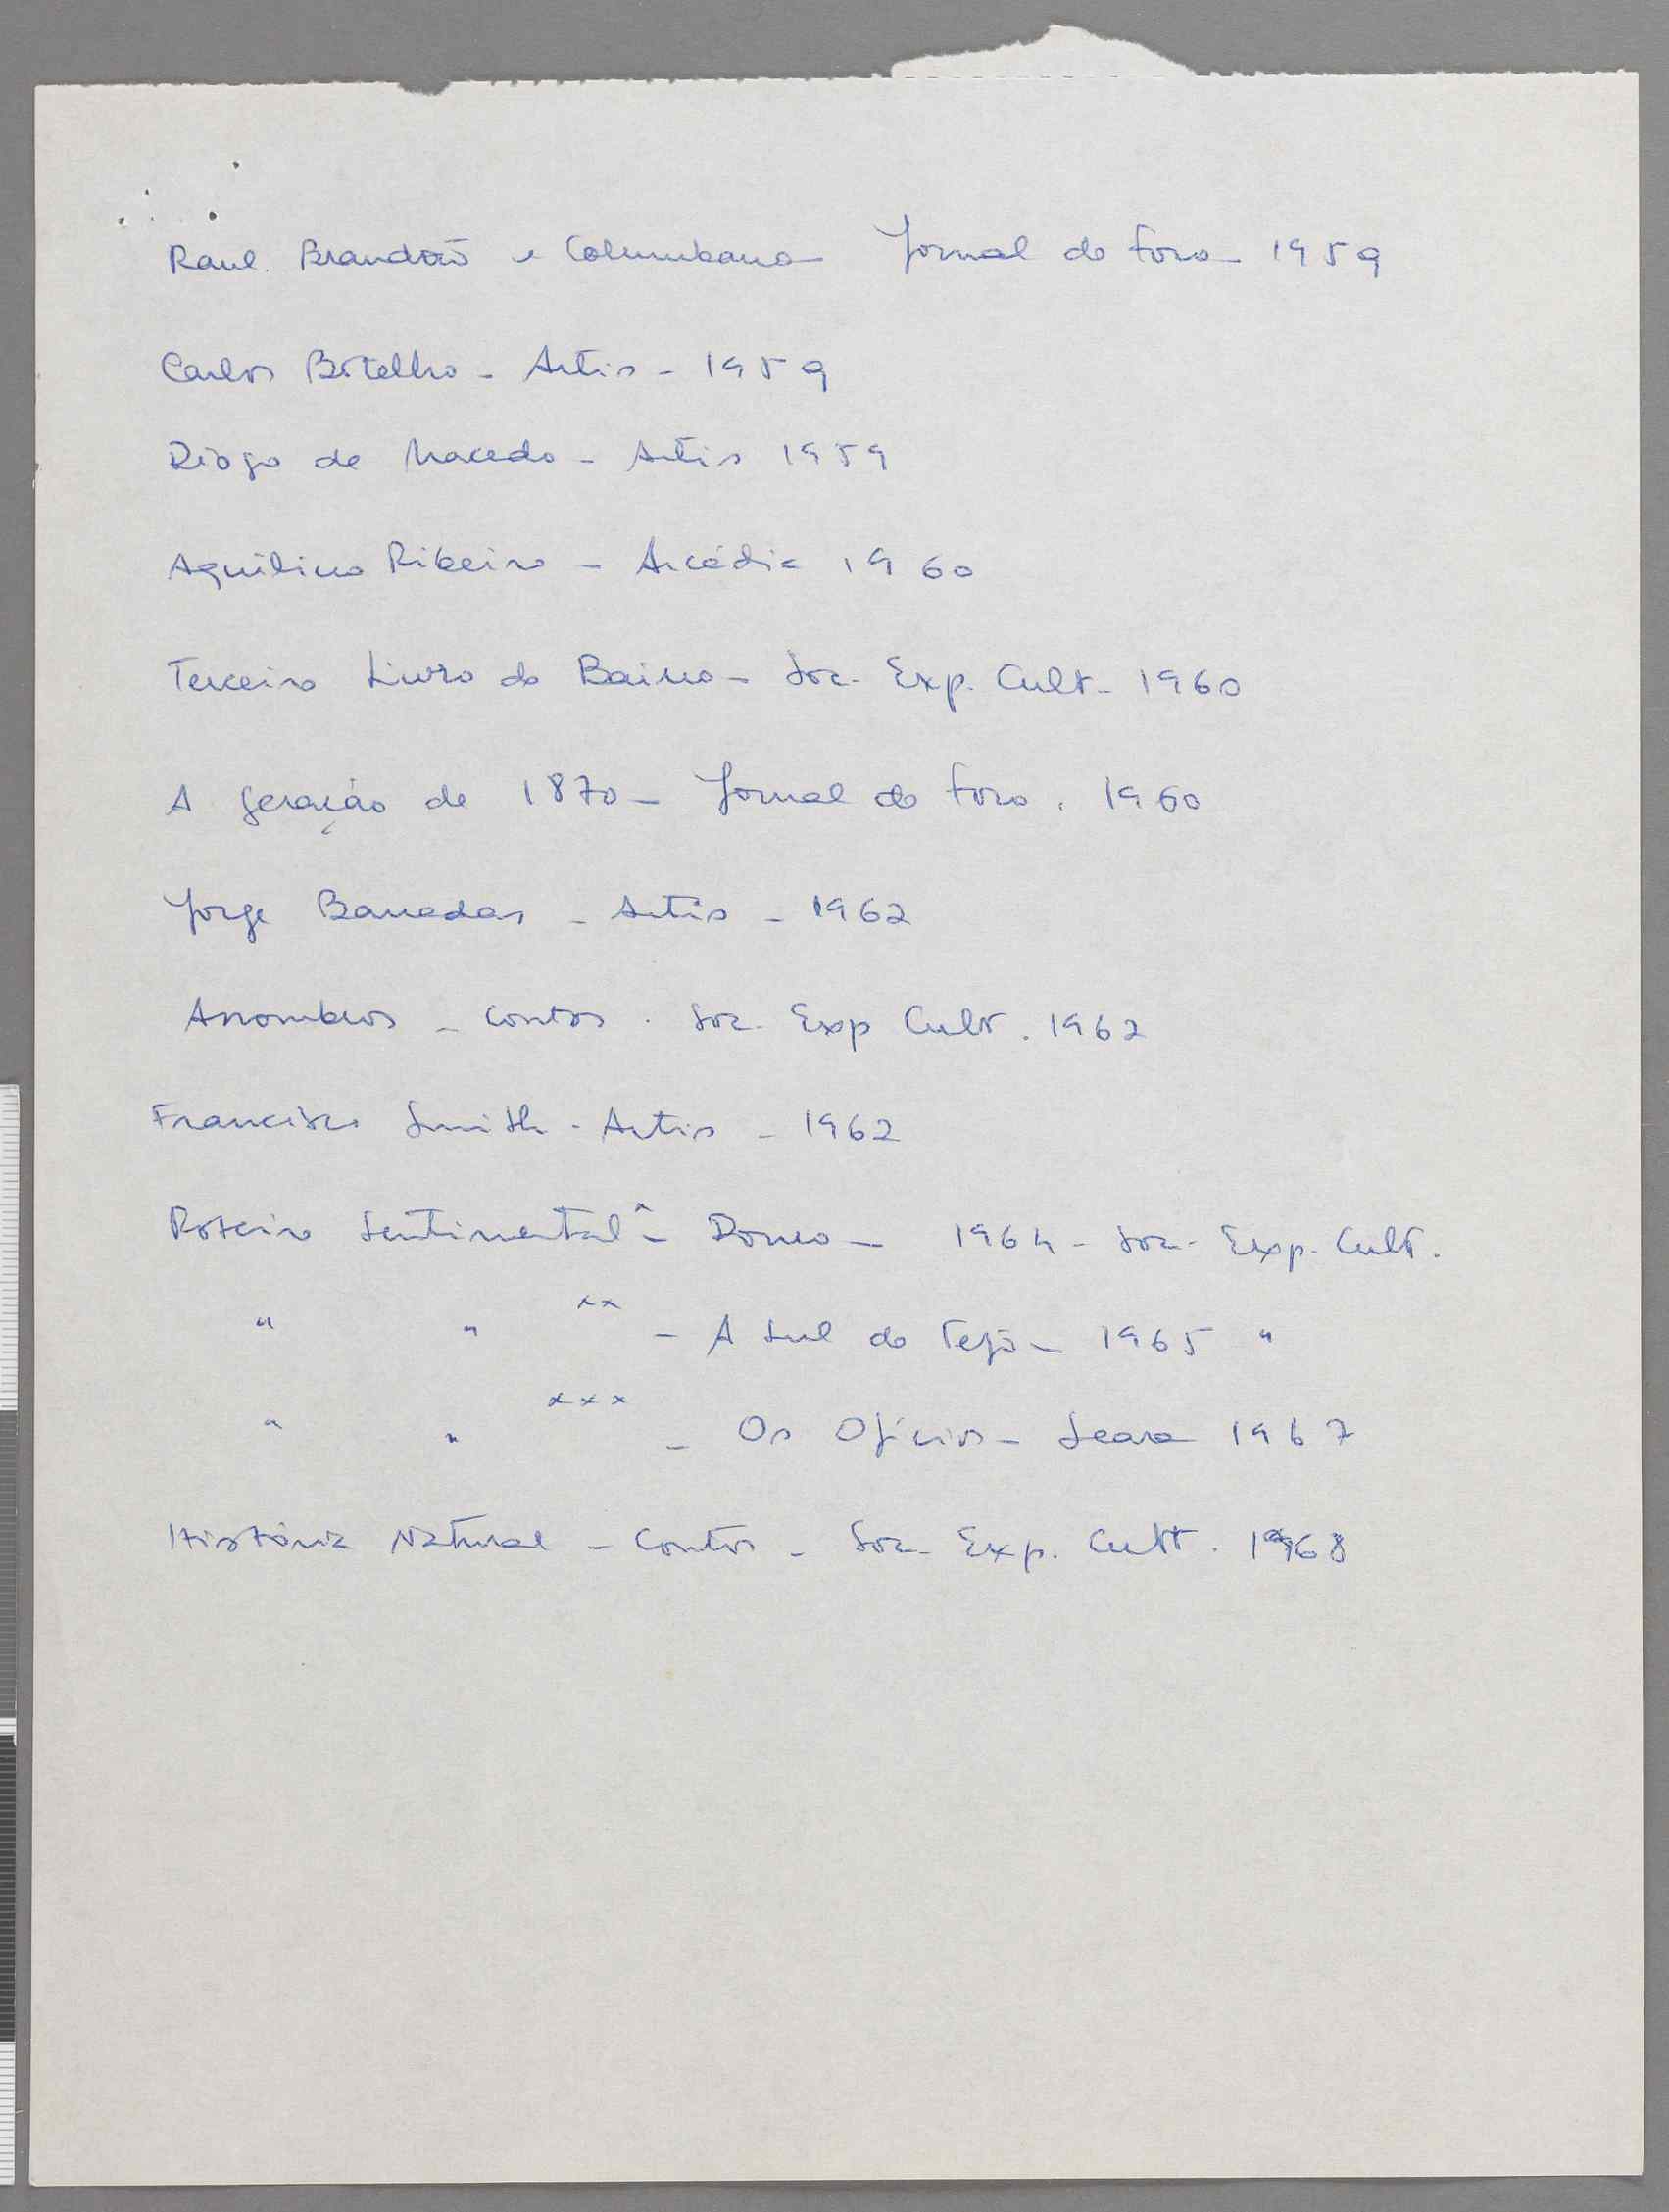 Raul Brandão e Columbano Jornal do Foro - 1959
Carlos Botelho - Artis - 1959
Diogo de Macedo - Artis 1959
Aquilino Ribeiro - Arcádia 1960
Terceiro Livro do Bairro - Soc. Exp. Cult - 1960
A geração de 1870 - Jornal do Foro. 1960
Jorge Barradas - Artis - 1962
Assombros - Contos. Soc. Exp Cult. 1962
Francisco Smith - Artis - 1962
Roteiro Sentimental x - Douro - 1964 - Soc. Exp. Cult.
" " xx - A Sul do Tejo - 1965 "
" " xxx - Os Ofícios - Seara 1967
História Natural - Contos - Soc. Exp. Cult. 1968